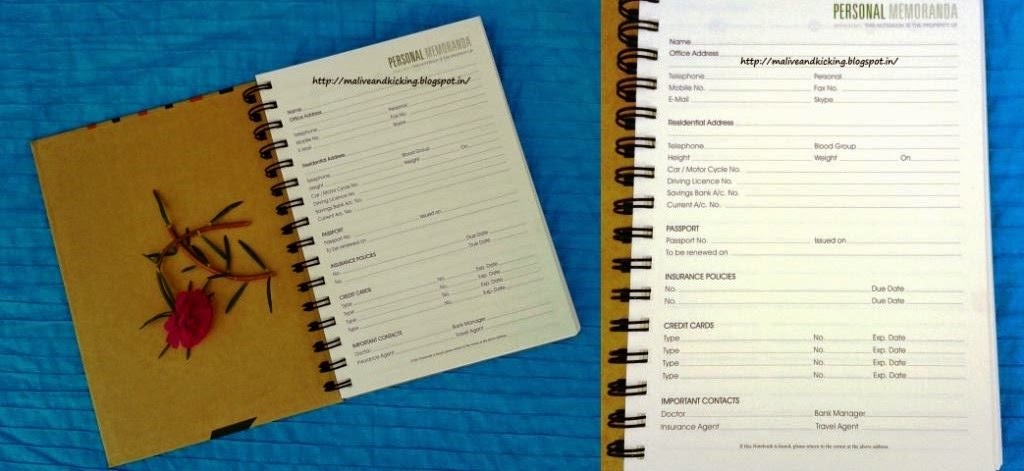 PERSONAL MEMORANDA
http://maliveandkicking.blogspot.in/
Name
Office Address
Personal
Fax No.
Telephone
Skype
Mobile No.
E-Mail
Residential Address
Blood Group
Telephone
Weight On
Height
Car / Motor Cycle No.
Driving Licence No.
Savings Bank A/c. No.
Current A/c. No.
PASSPORT
Passport No. Issued on
To be renewed on
INSURANCE POLICIES
No. Due Date
No. Due Date
CREDIT CARDS
Type No. Exp. Date
Type No. Exp. Date
Type No. Exp. Date
Type
IMPORTANT CONTACTS
Doctor Bank Manager
Insurance Agent Travel Agent
PERSONAL MEMORANDA
THIS NOTEBOOK IS THE PROPERTY OF
Name
Office Address
http://maliveandkicking.blogspot.in/
Telephone Personal
Mobile No. Fax No.
E-Mail Skype
Residential Address
Telephone Blood Group
Height Weight On
Car / Motor Cycle No.
Driving Licence No.
Savings Bank A/c. No.
Current A/c. No.
PASSPORT
Passport No. Issued on
To be renewed on
INSURANCE POLICIES
No. Due Date
No. Due Date
CREDIT CARDS
Type No. Exp. Date
Type No. Exp. Date
Type No. Exp. Date
Type No. Exp. Date
IMPORTANT CONTACTS
Doctor Bank Manager
Insurance Agent Travel Agent
If this Notebook is found, please return to the owner at the above address.